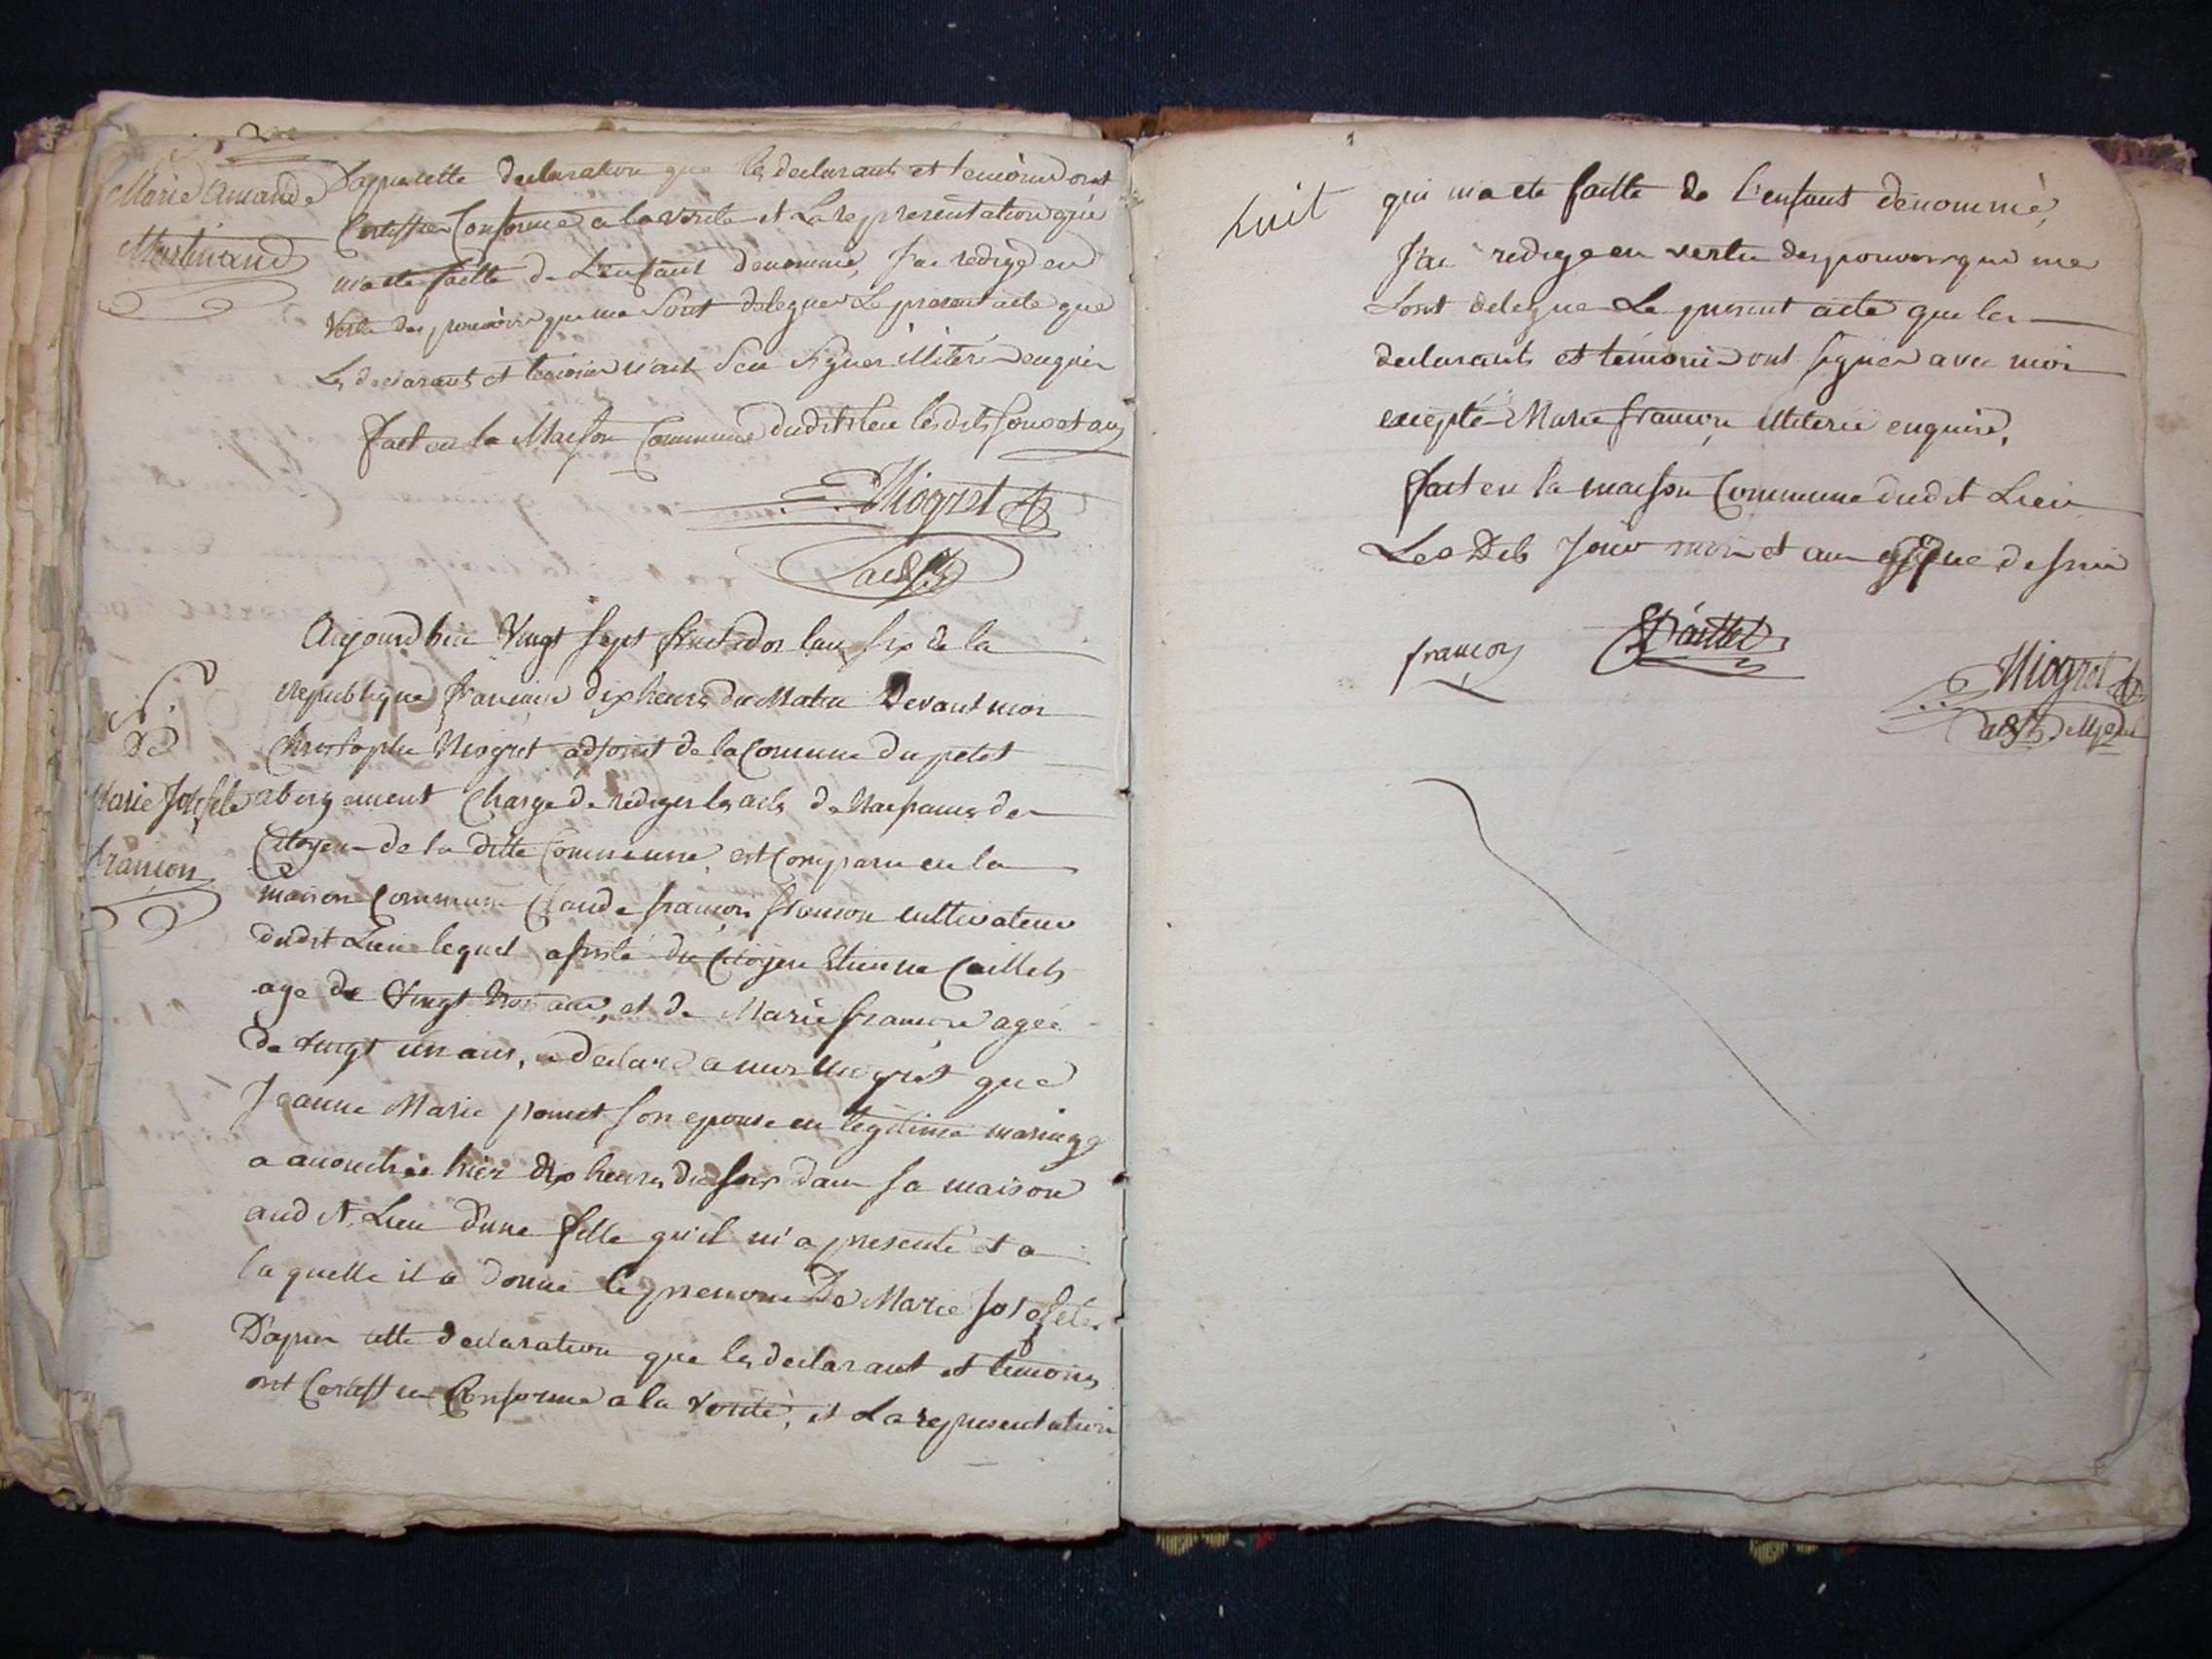 Marie Amande
Martinand
D'apres cette declaration que les declarants et temoins ont
Certiffier Conforme a la verite et La representation qui
ma ete faitte de L'enfant denommé, J'ai redigé en
Vertu des pouvoirs qui me Sont deleguer Le present acte que
Les declarants et temoins n'ont Seu Signer illiteré enquis
fait en la Maison Commune dudit lieu les dits jours et an
Niogret
adjt
Aujourdhui Vingt Sept fructidor lan six de la
Republique francaise dix heures du Matin Devant moi
Christophe Niogret adjoint de la Commune du petit
De
Marie Josefete
françon
abergement Charge de rediger les acts de Naissances des
Citoyens de la ditte Commune, est Comparu en la
maison Commune Claude françois françon cultivateur
dudit Lieu lequel assisté du Citoyen Etienne Caillets
age de Vingt trois ans, et de Marie françon agée
de vingt un ans, a declaré a moi Niogret que
Jeanne Marie pomet son epouse en legitime mariage
a acouchée hier dix heures du soir dans sa maison
audit Lieu d'une fille qu'il m'a presenté et a
laquelle il a donné le prenom De Marie Josefete
D'apres cette declaration que les declarant et temoins
ont Certiffier Conforme a la verité, et La representation
huit
qui ma ete faitte de l'enfant denommé,
J'ai redige en vertu des pouvoirs qui me
Sont delegue Le present acte que les
declarants et temoins ont signer avec moi
excepté Marie françon illiterée enquise,
fait en la maison Commune dudit Lieu
Les Dits Jour mois et an que dessus
françon
Caillet
Niogret
adjt